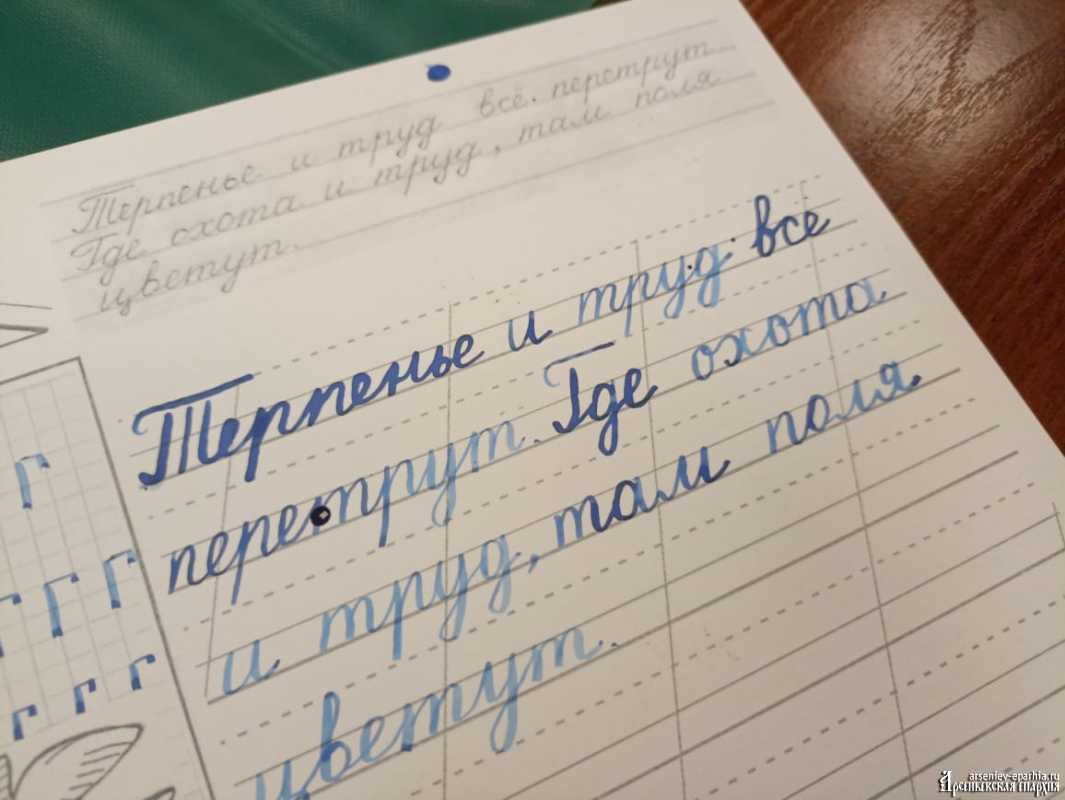 Терпенье и труд всё перетрут.
Где охота и труд, там поля
цветут.
Терпенье и труд все
перетрут. Где охота
и труд, там поля
цветут.
Г
Г Г Г
Г Г Г
arseniev-eparhia.ru
Арсеньевская епархия